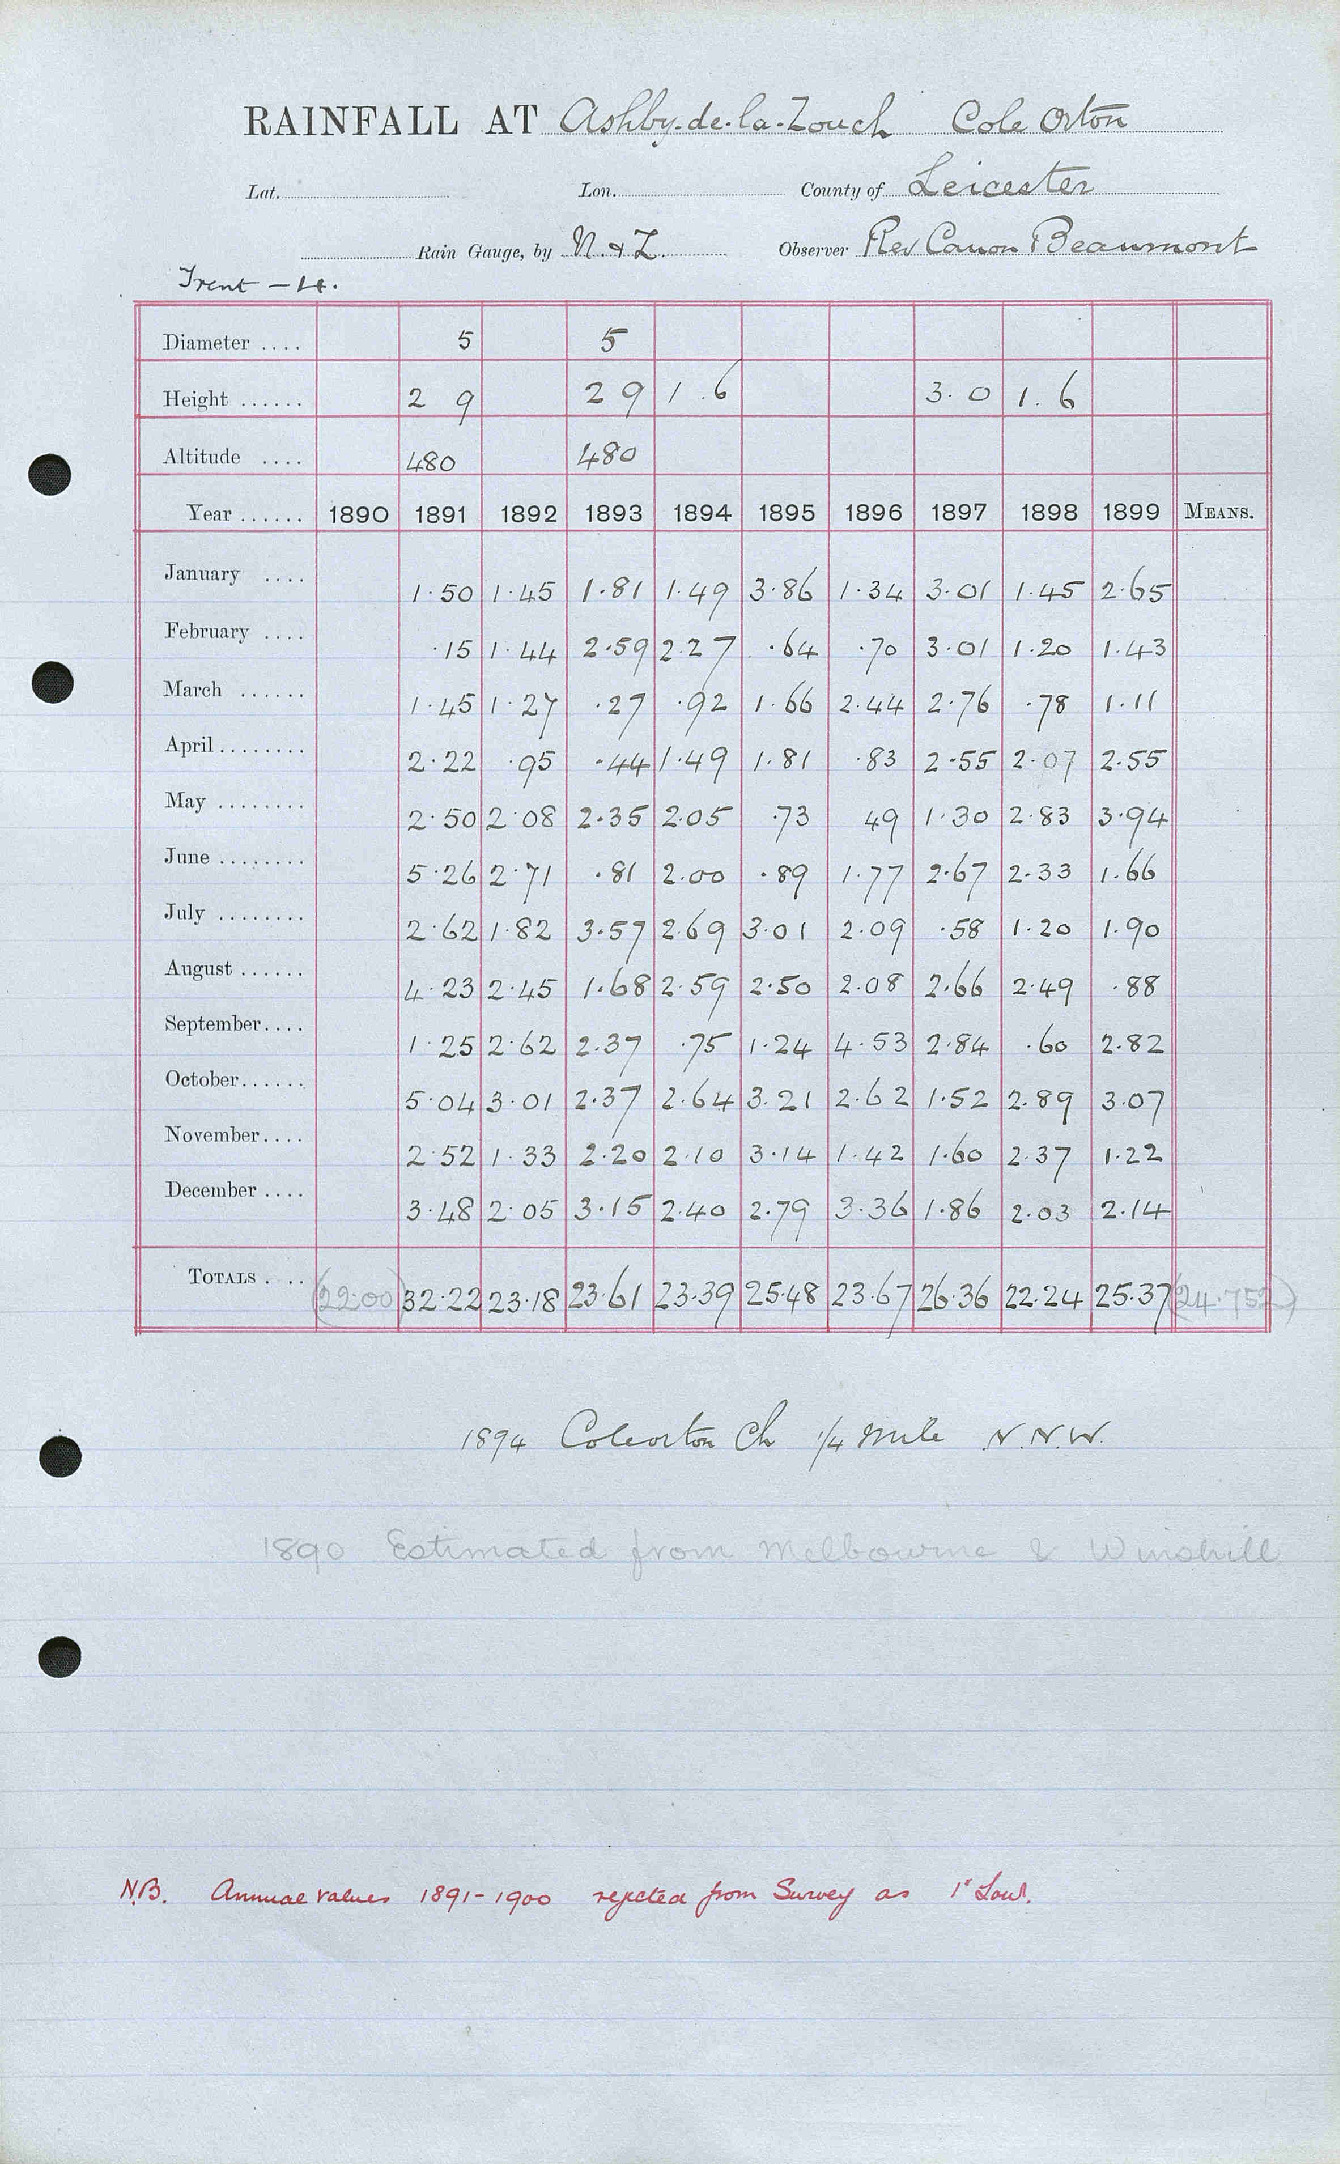 RAINFALL AT Ashby-de-la-Zouch Cole Orton
Lat. Lon. County of Leicester
Rain Gauge, by N. & Z. Observer Rev Canon Beaumont
Trent - L4.
Diameter .... 5 5
Height ...... 2 9 2 9 1.6 3.0 1.6
Altitude .... 480 480
Year ...... 1890 1891 1892 1893 1894 1895 1896 1897 1898 1899 MEANS.
January .... 1.50 1.45 1.81 1.49 3.86 1.34 3.01 1.45 2.65
February .... .15 1.44 2.59 2.27 .64 .70 3.01 1.20 1.43
March ...... 1.45 1.27 .27 .92 1.66 2.44 2.76 .78 1.11
April ........ 2.22 .95 .44 1.49 1.81 .83 2.55 2.07 2.55
May ........ 2.50 2.08 2.35 2.05 .73 49 1.30 2.83 3.94
June ........ 5.26 2.71 .81 2.00 .89 1.77 2.67 2.33 1.66
July ........ 2.62 1.82 3.57 2.69 3.01 2.09 .58 1.20 1.90
August ...... 4.23 2.45 1.68 2.59 2.50 2.08 2.66 2.49 .88
September .... 1.25 2.62 2.37 .75 1.24 4.53 2.84 .60 2.82
October ...... 5.04 3.01 2.37 2.64 3.21 2.62 1.52 2.89 3.07
November .... 2.52 1.33 2.20 2.10 3.14 1.42 1.60 2.37 1.22
December .... 3.48 2.05 3.15 2.40 2.79 3.36 1.86 2.03 2.14
TOTALS .... (22.00) 32.22 23.18 23.61 23.39 25.48 23.67 26.36 22.24 25.37 (24.752)
1894 Coleorton Ch 1/4 Mile N.N.W.
1890 Estimated from Melbourne & Winshill
N.B. Annual values 1891-1900 rejected from Survey as 1" Low.